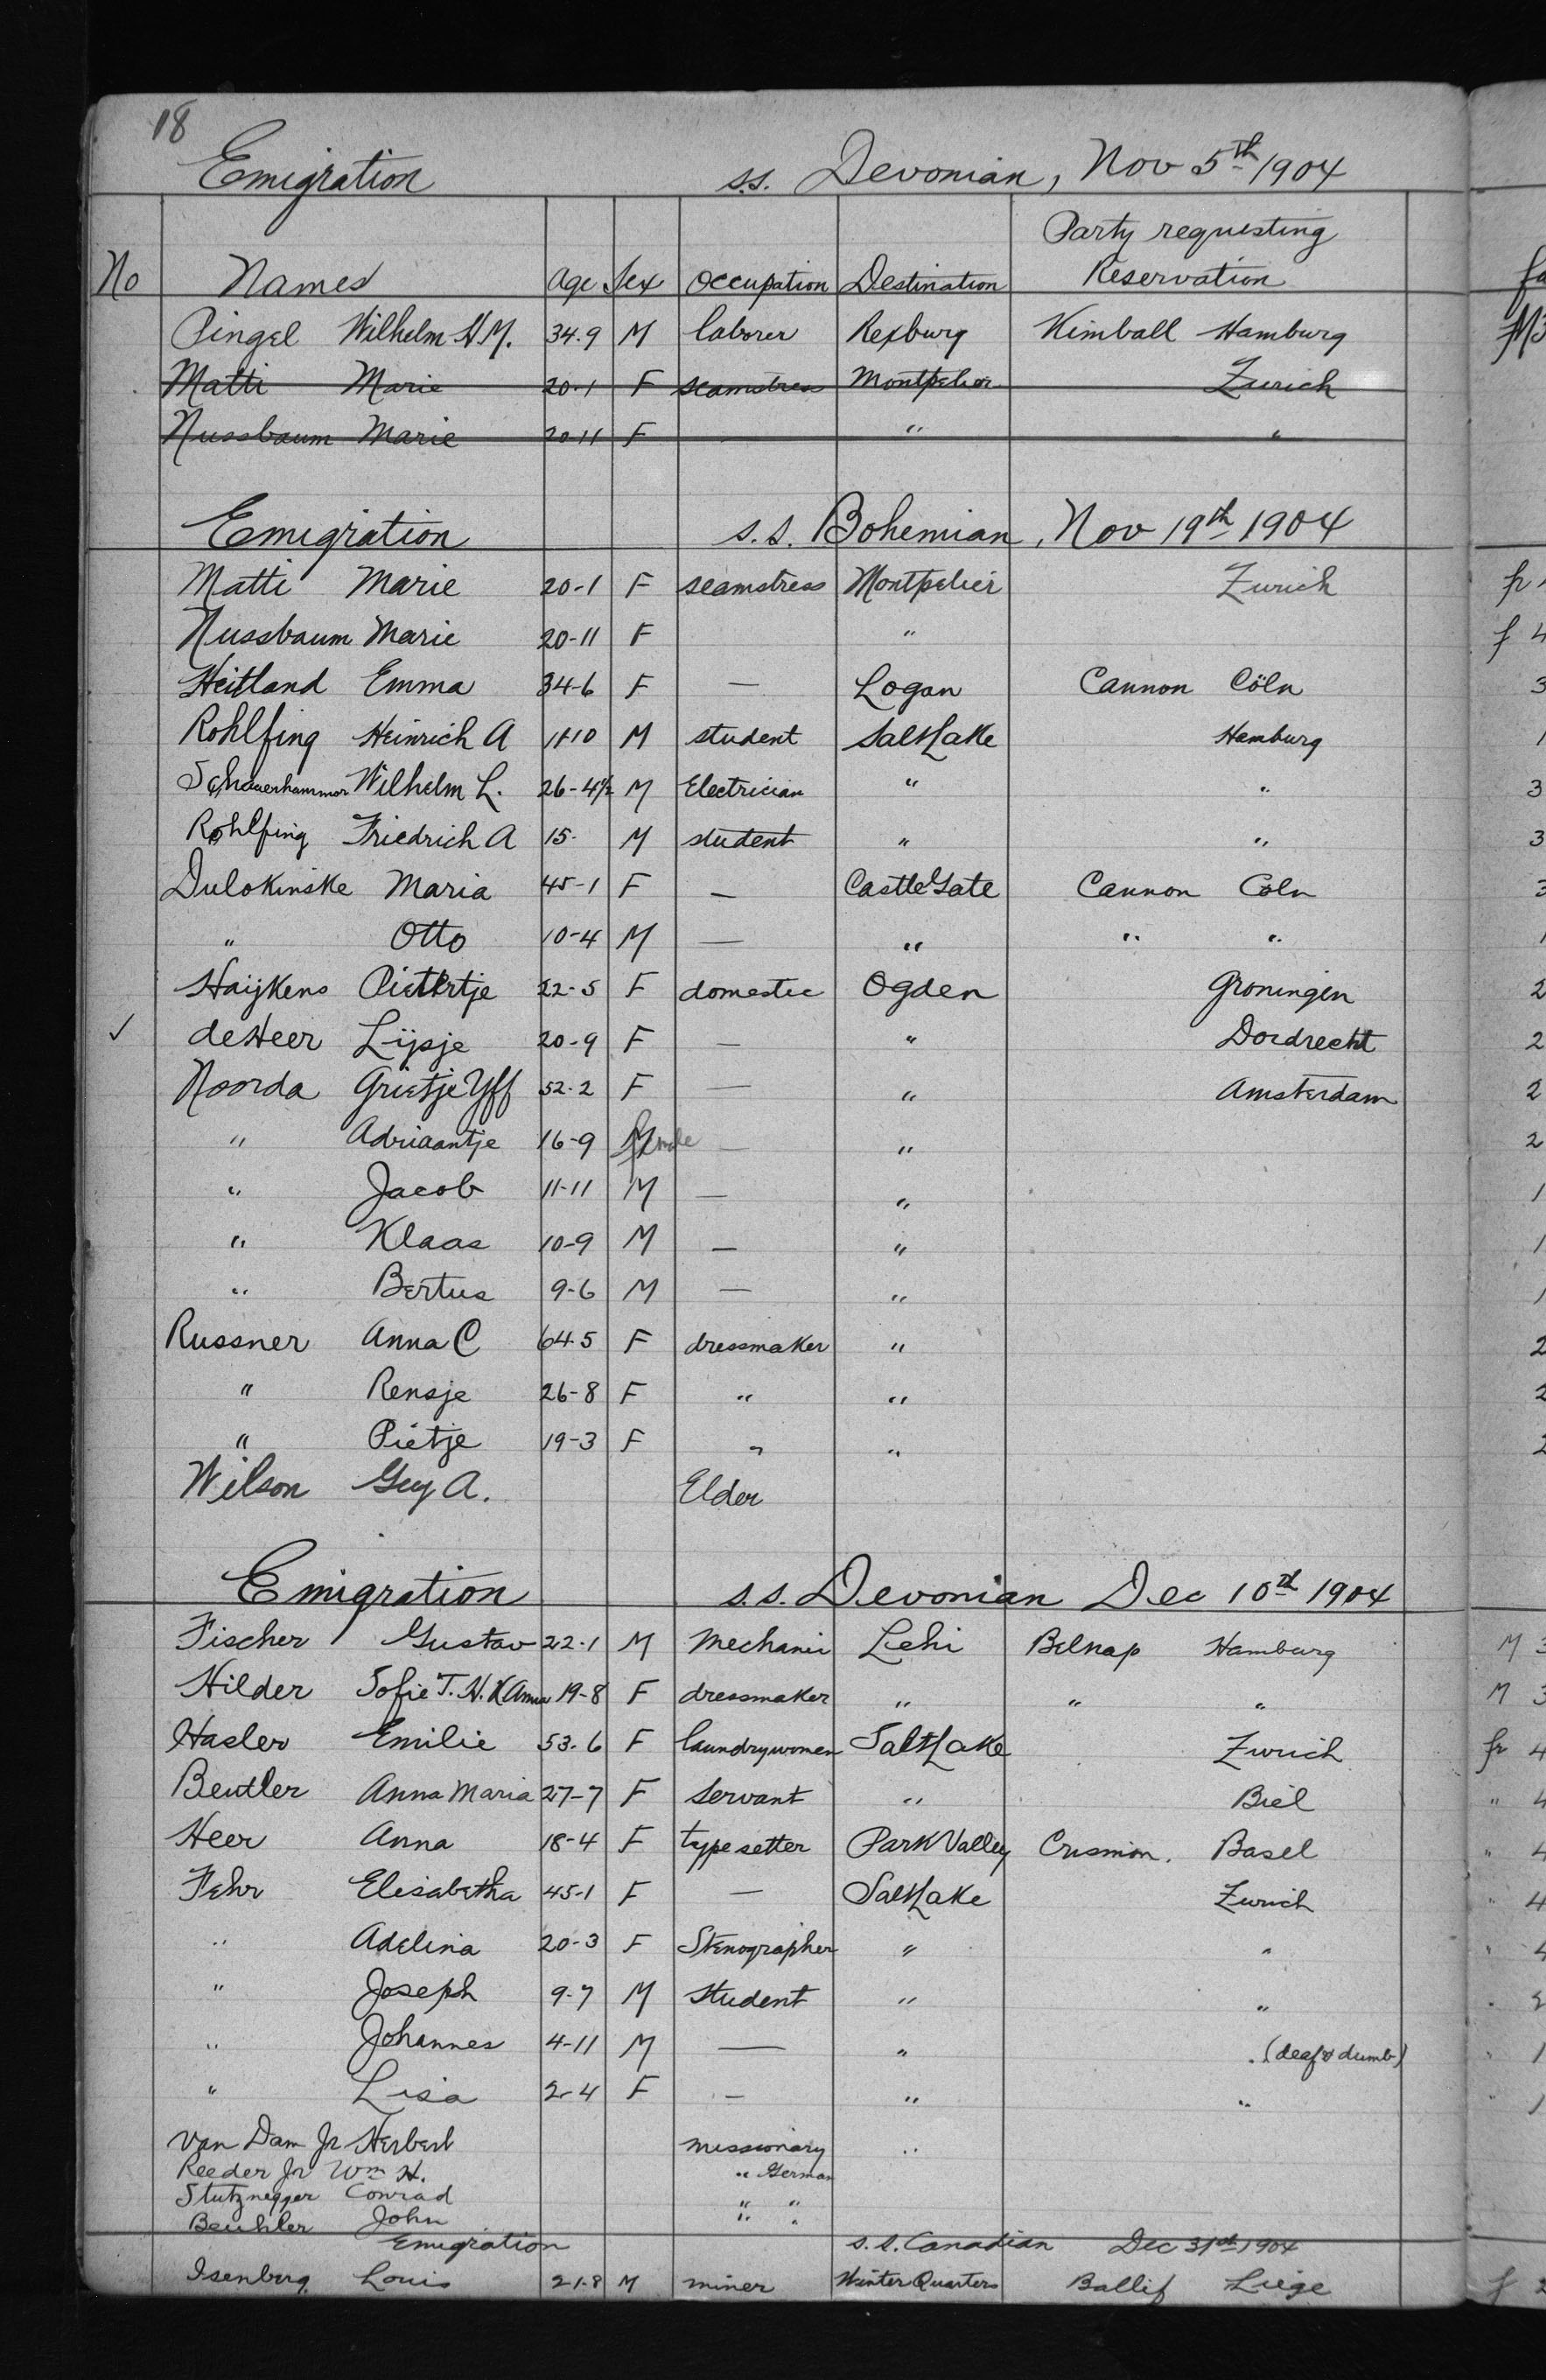 18
Emigration s.s. Devonian, Nov 5th 1904
Party requesting
No Names Age Sex Occupation Destination Reservation
Pingel Wilhelm H M. 34.9 M laborer Rexburg Kimball Hamburg
Matti Marie 20-1 F seamstress Montpelier Zurich
Nussbaum Marie 20-11 F " "
Emigration s.s. Bohemian, Nov 19th 1904
Matti Marie 20-1 F seamstress Montpelier Zurich
Nussbaum Marie 20-11 F "
Heitland Emma 34-6 F — Logan Cannon Cöln
Rohlfing Heinrich A 11-10 M student Salt Lake Hamburg
Schauerhammer Wilhelm L. 26-4½ M Electrician " "
Rohlfing Friedrich A 15- M student " "
Dulokinske Maria 45-1 F — Castle Gate Cannon Cöln
" Otto 10-4 M — " " "
Haijkens Pietertje 22-5 F domestic Ogden Groningen
✓ de Heer Lijsje 20-9 F — " Dordrecht
Noorda Grietje Yff 52-2 F — " Amsterdam
" Adriaantje 16-9 — "
" Jacob 11-11 M — "
" Klaas 10-9 M — "
" Bertus 9-6 M — "
Russner Anna C 64-5 F dressmaker "
" Rensje 26-8 F " "
" Pietje 19-3 F " "
Wilson Guy A. Elder
Emigration s.s. Devonian Dec 10th 1904
Fischer Gustav 22-1 M mechanic Lehi Belnap Hamburg
Hilder Sofie T. H. K Anna 19-8 F dressmaker " " "
Hasler Emilie 53-6 F laundrywomen Salt Lake Zurich
Beutler Anna Maria 27-7 F servant " Biel
Heer Anna 18-4 F type setter Park Valley Crismon. Basel
Fehr Elisabetha 45-1 F — Salt Lake Zurich
" Adelina 20-3 F Stenographer " "
" Joseph 9-7 M student " "
" Johannes 4-11 M — " " (deaf & dumb)
" Lisa 2-4 F — " "
Van Dam Jr Herbert missionary "
Reeder Jr Wm H. " German
Stutznegger Conrad " "
Beuhler John " "
Emigration s.s. Canadian Dec 31st 1904
Isenberg Louis 21-8 M miner Winter Quarters Ballif Liege